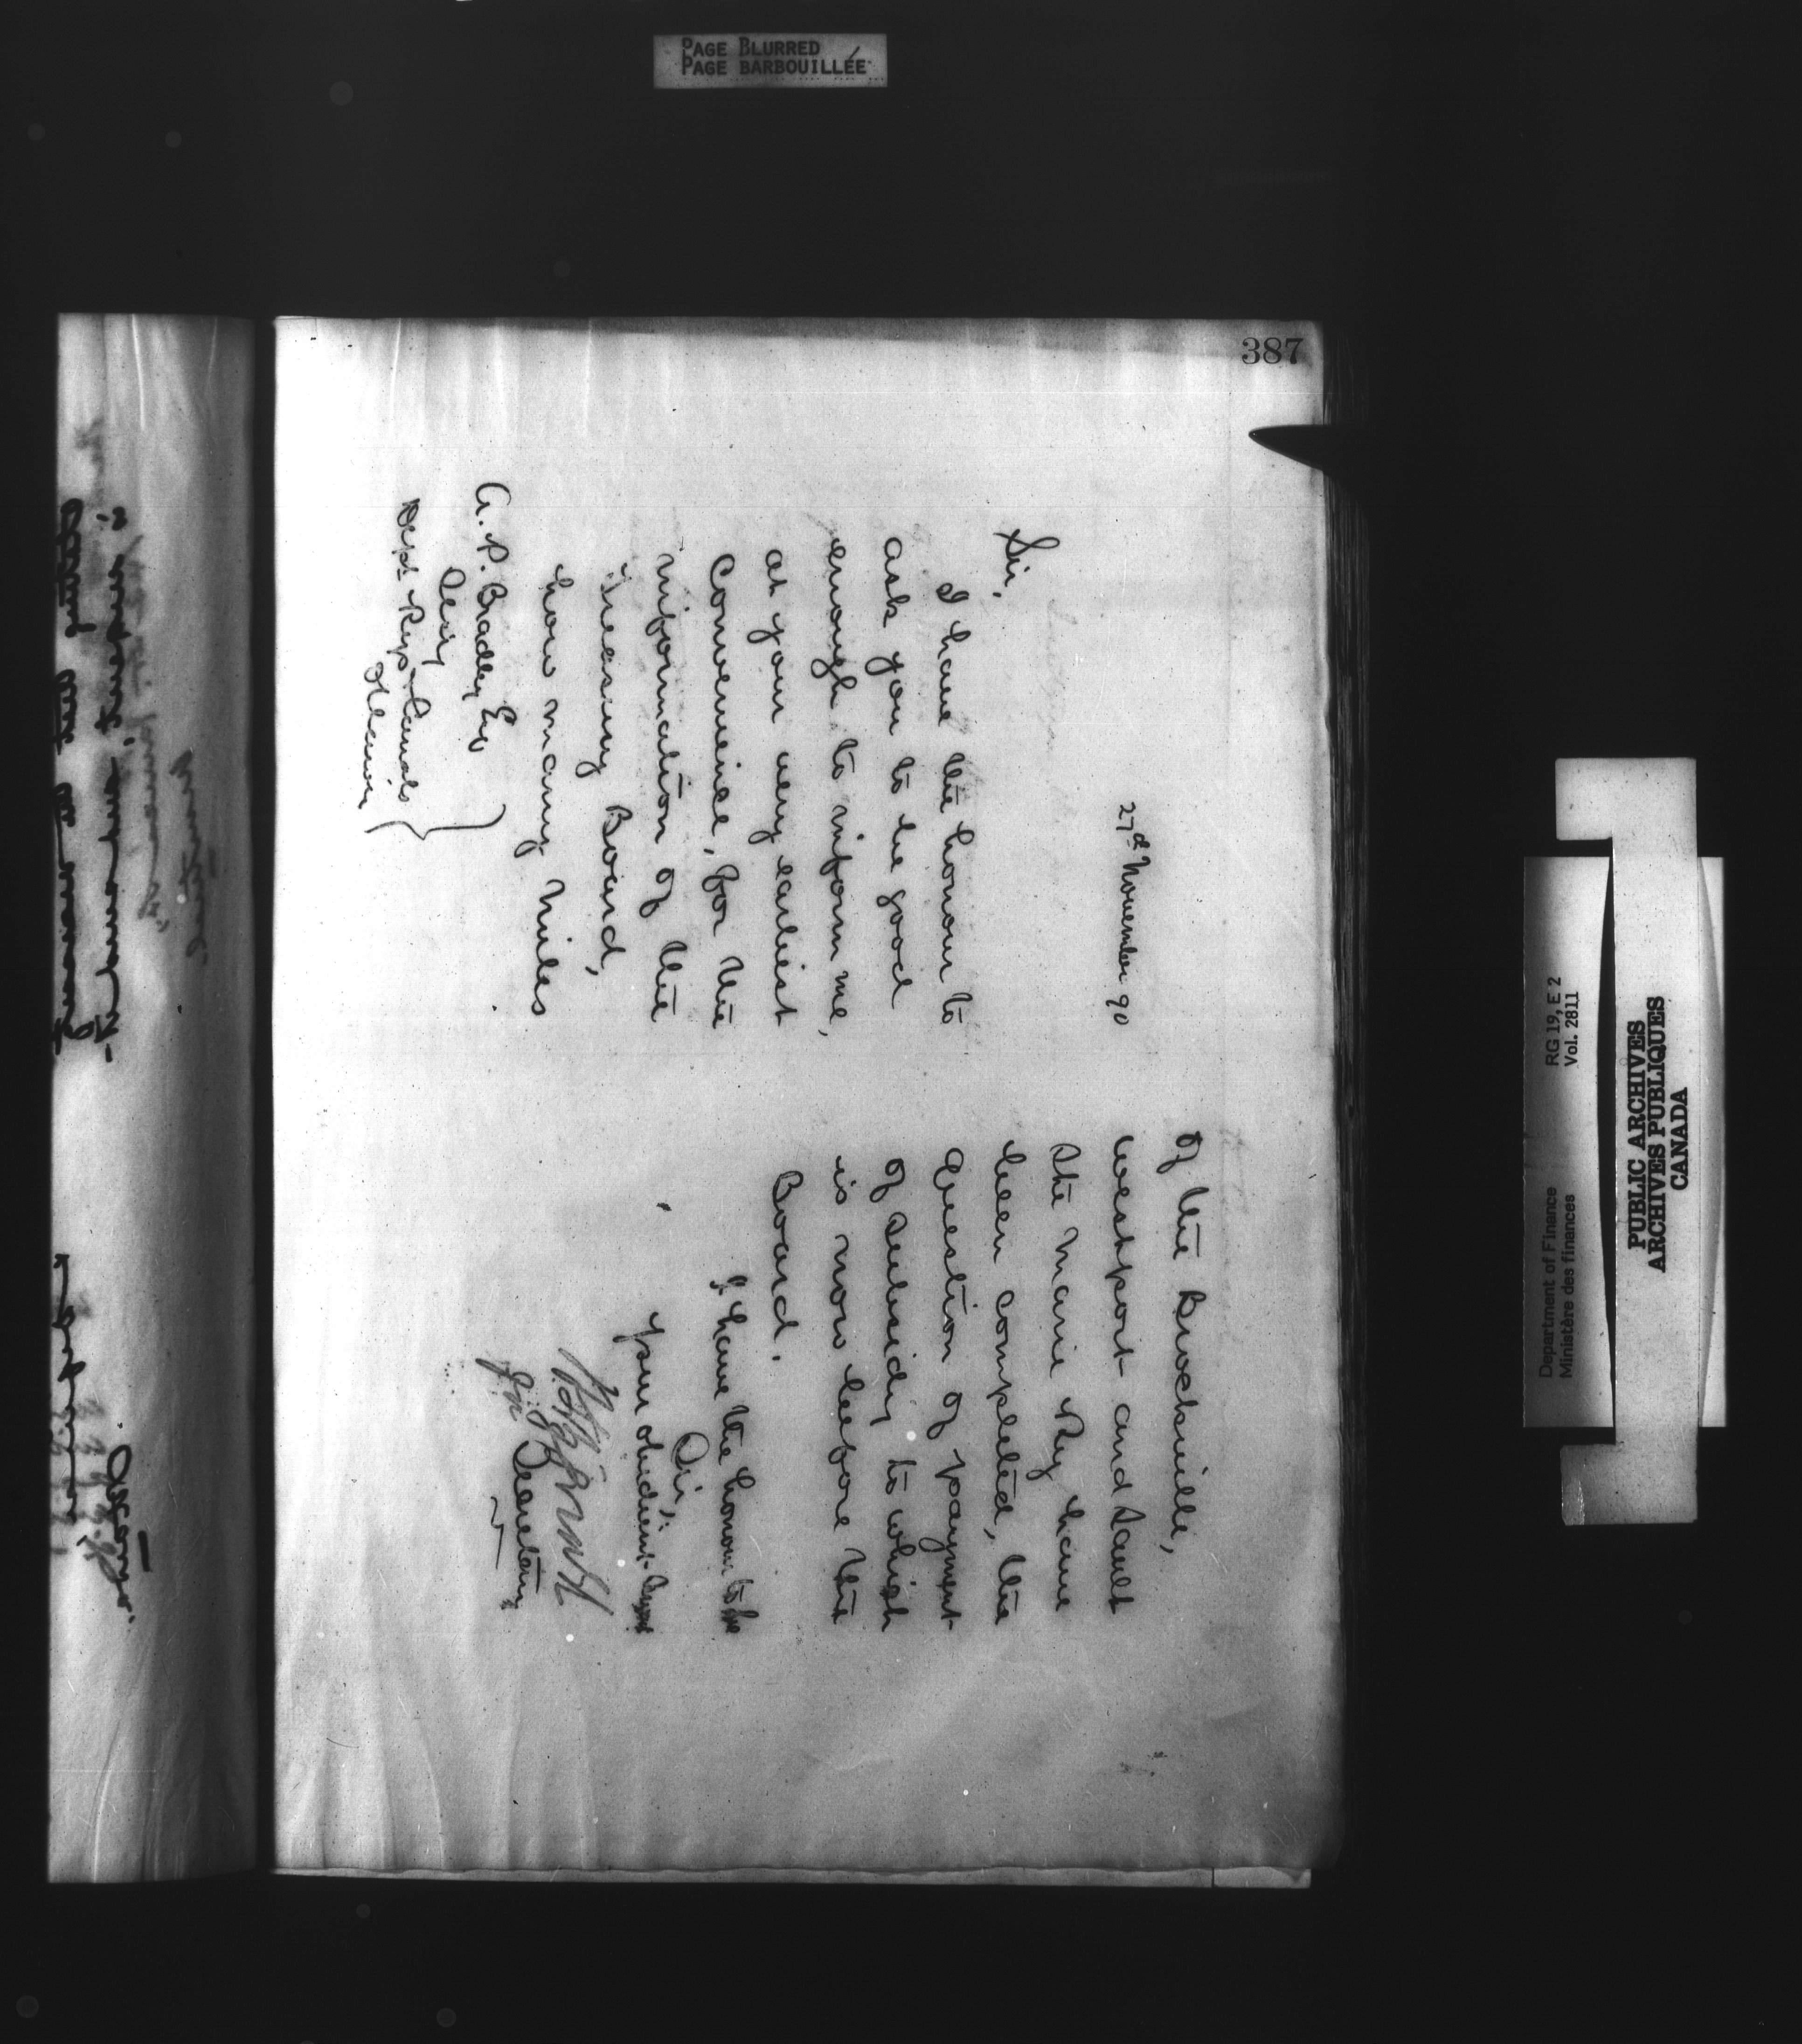 PAGE BLURRED
PAGE BARBOUILLÉE
387
27d November 90
Sir,
I have the honour to
ask you to be good
enough to inform me,
at your very earliest
convenience, for the
information of the
Treasury Board,
how many miles
A. P. Bradley Esq
Secy
Dept Rys & Canals
Ottawa
of the Brockville,
Westport and Sault
Ste Marie Ry have
been completed, the
question of payment
of subsidy to which
is now before the
Board.
I have the honour to be
Sir,
your obedient
for Secretary
RG 19, E 2
Vol. 2811
Department of Finance
Ministère des finances
PUBLIC ARCHIVES
ARCHIVES PUBLIQUES
CANADA